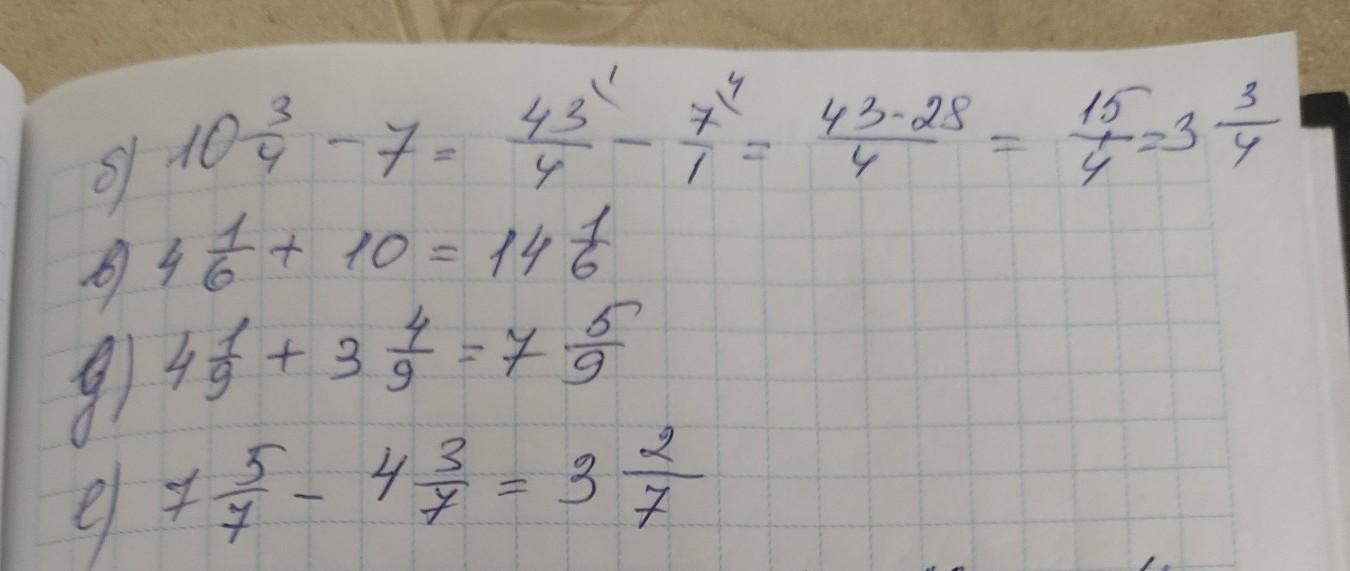 б) 10 3/4 - 7 = 43/4 \1 - 7/1 \4 = 43-28/4 = 15/4 = 3 3/4
в) 4 1/6 + 10 = 14 1/6
д) 4 1/9 + 3 4/9 = 7 5/9
е) 7 5/7 - 4 3/7 = 3 2/7